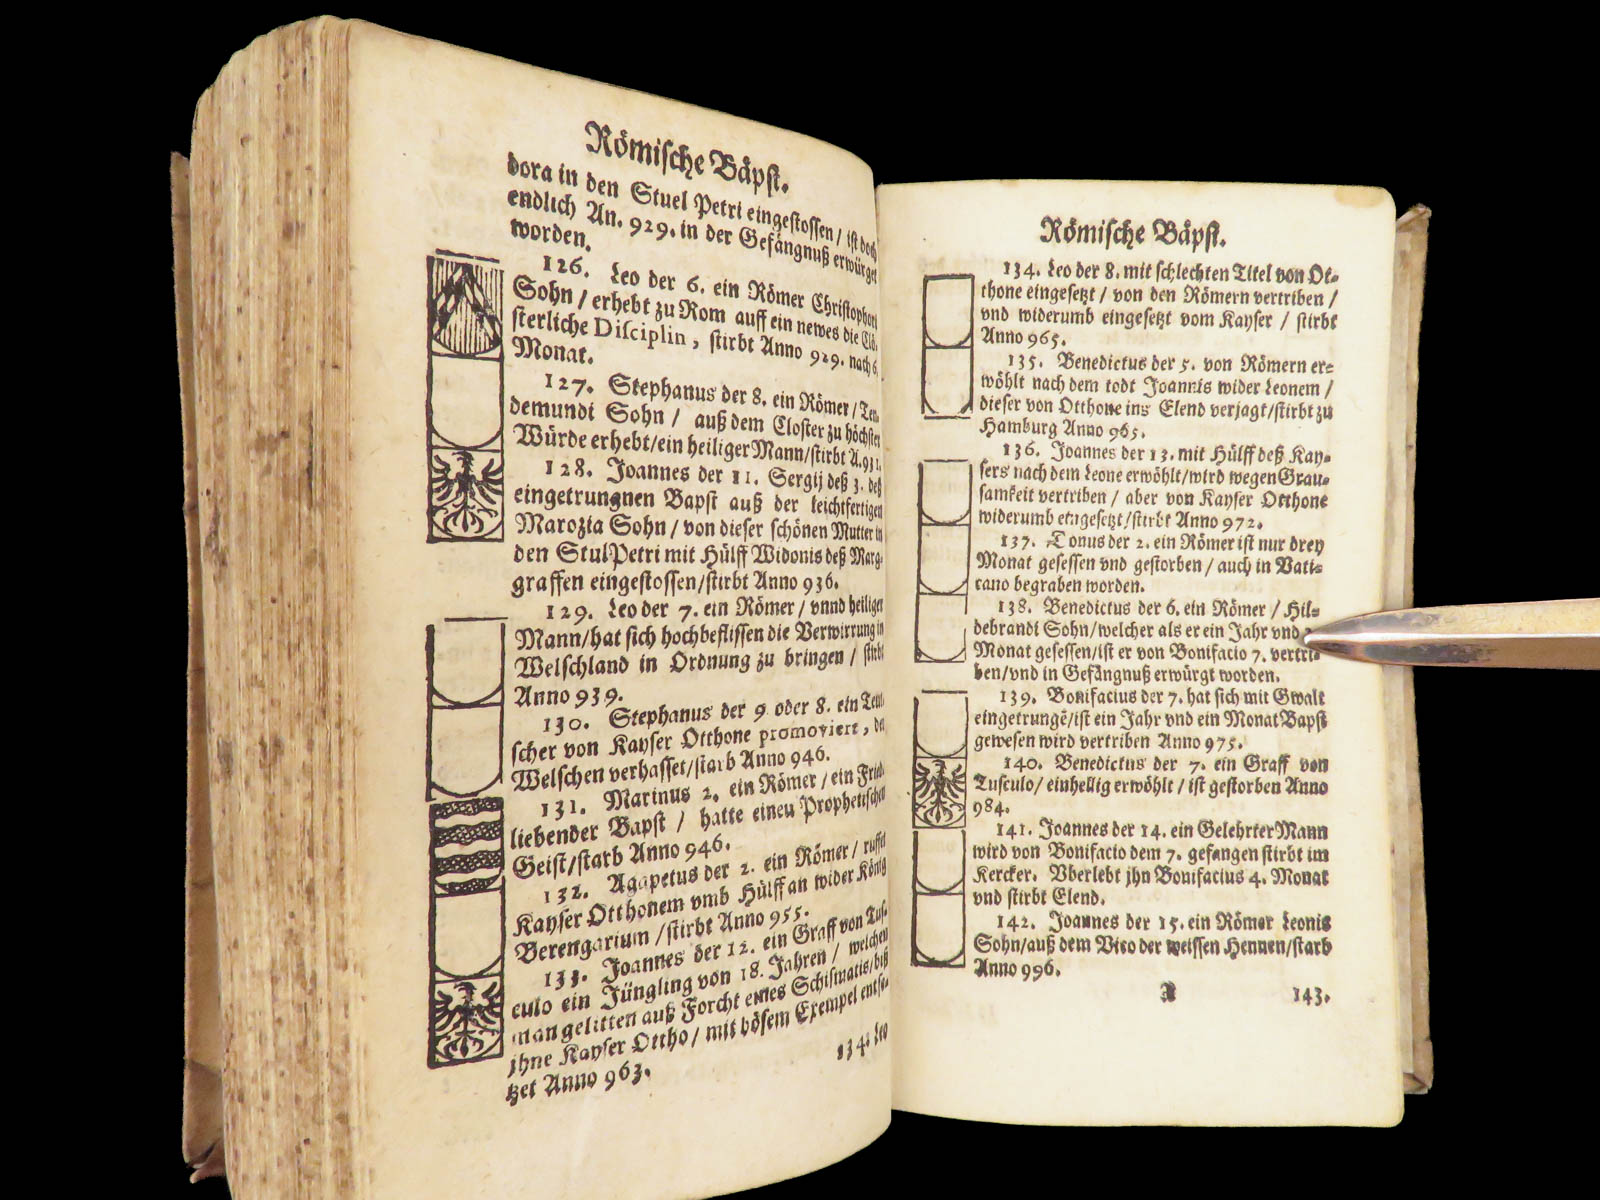 Römische Bäpst.
dora in den Stuel Petri eingestossen / ist doch
endlich An. 929. in der Gefängnuß erwürget
worden.
126. Leo der 6. ein Römer Christophori
Sohn / erhebt zu Rom auff ein newes die Clö-
sterliche Disciplin, stirbt Anno 929. nach 6.
Monat.
127. Stephanus der 8. ein Römer /
demundi Sohn / auß dem Closter zu höchster
Würde erhebt/ein heiliger Mann/stirbt A.931.
128. Joannes der 11. Sergij deß 3. deß
eingetrungnen Bapst auß der leichtfertigen
Marozia Sohn / von dieser schönen Mutter in
den Stul Petri mit Hülff Widonis deß Marg-
graffen eingestossen/stirbt Anno 936.
129. Leo der 7. ein Römer / vnnd heiliger
Mann/hat sich hochbeflissen die Verwirrung in
Welschland in Ordnung zu bringen / stirbt
Anno 939.
130. Stephanus der 9. oder 8. ein Teut-
scher von Kayser Otthone promoviert, den
Welschen verhasset/starb Anno 946.
131. Marinus 2. ein Römer / ein Fried-
liebender Bapst / hatte einen Prophetischen
Geist/starb Anno 946.
132. Agapetus der 2. ein Römer / ruffet
Kayser Otthonem vmb Hülff an wider König
Berengarium /stirbt Anno 955.
133. Joannes der 12. ein Graff von Tus-
culo ein Jüngling von 18. Jahren / welchen
man gelitten auß Forcht eines Schismatis/biß
jhne Kayser Ottho/ mit bösem Exempel entse-
tzet Anno 963.
134. Leo
Römische Bäpst.
134. Leo der 8. mit schlechten Titel von Ot-
thone eingesetzt / von den Römern vertriben /
vnd widerumb eingesetzt vom Kayser / stirbt
Anno 965.
135. Benedictus der 5. von Römern er-
wöhlt nach dem todt Joannis wider Leonem /
dieser von Otthone ins Elend verjagt/stirbt zu
Hamburg Anno 965.
136. Joannes der 13. mit Hülff deß Kay-
sers nach dem Leone erwöhlt/wird wegen Grau-
samkeit vertriben / aber von Kayser Otthone
widerumb eingesetzt/stirbt Anno 972.
137. Donus der 2. ein Römer ist nur drey
Monat gesessen vnd gestorben / auch in Vati-
cano begraben worden.
138. Benedictus der 6. ein Römer / Hil-
debrandi Sohn/welcher als er ein Jahr vnd
Monat gesessen/ist er von Bonifacio 7. vertri-
ben/vnd in Gefängnuß erwürgt worden.
139. Bonifacius der 7. hat sich mit Gwalt
eingetrungē/ist ein Jahr vnd ein Monat Bapst
gewesen wird vertriben Anno 975.
140. Benedictus der 7. ein Graff von
Tusculo/ einhellig erwöhlt / ist gestorben Anno
984.
141. Joannes der 14. ein Gelehrter Mann
wird von Bonifacio dem 7. gefangen stirbt im
Kercker. Vberlebt jhn Bonifacius 4. Monat
vnd stirbt Elend.
142. Joannes der 15. ein Römer Leonis
Sohn/auß dem Vico der weissen Hennen/starb
Anno 996.
143.